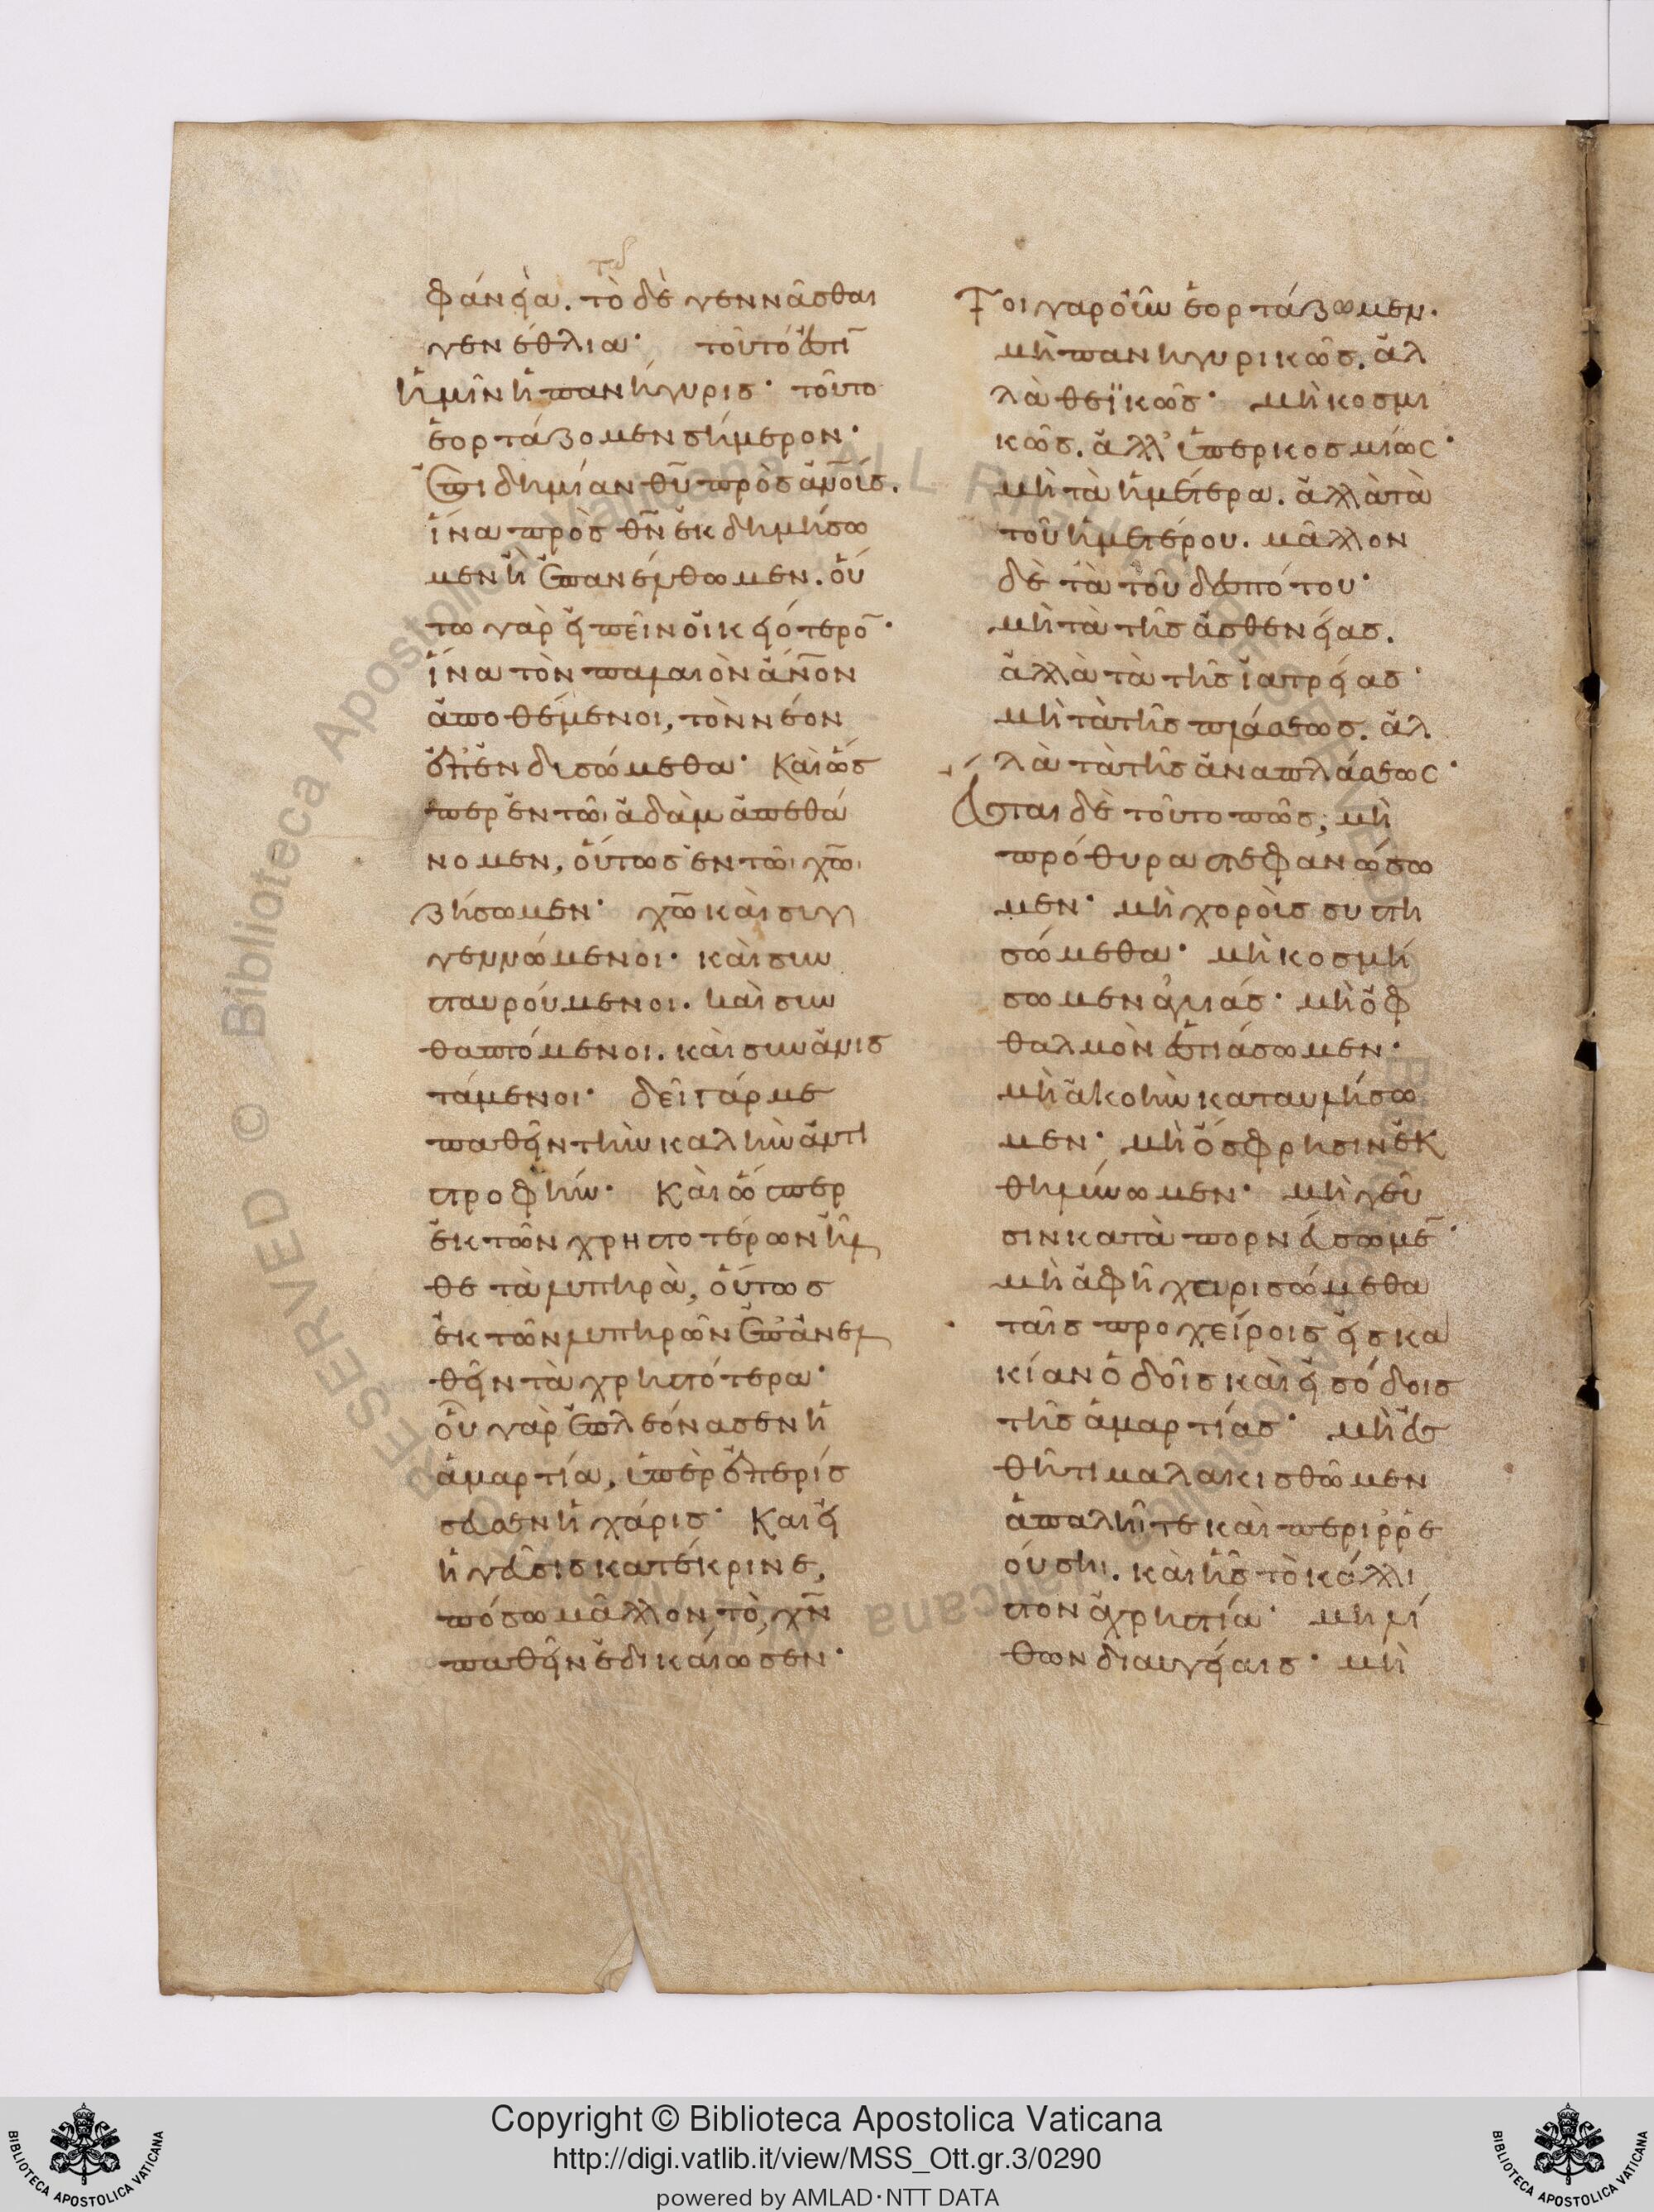 τω
φάνεια. τὸ δὲ γεννᾶσθαι
γενέθλια· τοῦτό ἐστῑ
ἡμῖν ἡ πανήγυρις· τοῦτο
ἑορτάζομεν σήμερον·
ἐπιδημίαν θῡ πρὸς ἀν̄οις.
ἵνα πρὸς θν̄ ἐκδημήσω
μεν ἢ ἐπανέλθωμεν. οὕ
τω γὰρ εἰπεῖν οἰκειότερο̄·
ἵνα τὸν παλαιὸν ἄν̄ον
ἀποθέμενοι, τὸν νέον
ἐπενδυσώμεθα· Καὶ ὥσ
περ ἐν τῶι ἀδὰμ ἀπεθά
νομεν, οὕτως ἐν τῶι χω̄ι
ζήσωμεν· χω̄ καὶ συγ
γεννώμενοι· καὶ συν
σταυρούμενοι. καὶ συν
θαπτόμενοι. καὶ συνανισ
τάμενοι· δεῖ γάρ με
παθεῖν τὴν καλὴν ἀντι
στροφήν· Καὶ ὥσπερ
ἐκ τῶν χρηστοτέρων ἦλ
θε τὰ λυπηρὰ, οὕτως
ἐκ τῶν λυπηρῶν ἐπανελ
θεῖν τὰ χρηστότερα·
οὗ γὰρ ἐπλεόνασεν ἡ
ἁμαρτία, ὑπερεπερίσ
σευσεν ἡ χάρις· Καὶ εἰ
ἡ γεῦσις κατέκρινε,
πόσω μᾶλλον, τὸ, χν̄
παθεῖν ἐδικαίωσεν·
Τοιγαροῦν ἑορτάζωμεν.
μὴ πανηγυρικῶς. ἀλ
λὰ θεϊκῶς· μὴ κοσμι
κῶς. ἀλλ' ὑπερκοσμίως·
μὴ τὰ ἡμέτερα. ἀλλὰ τὰ
τοῦ ἡμετέρου. μᾶλλον
δὲ τὰ τοῦ δεσπότου·
μὴ τὰ τῆς ἀσθενείας.
ἀλλὰ τὰ τῆς ἰατρείας·
μὴ τὰ τῆς πλάσεως. ἀλ
λὰ τὰ τῆς ἀναπλάσεως·
Ἔσται δὲ τοῦτο πῶς; μὴ
πρόθυρα στεφανώσω
μεν· μὴ χοροὺς συστη
σώμεθα· μὴ κοσμή
σωμεν ἀγυιάς· μὴ ὀφ
θαλμὸν ἑστιάσωμεν·
μὴ ἀκοὴν καταυλήσω
μεν· μὴ ὄσφρησιν ἐκ
θηλύνωμεν· μὴ γεῦ
σιν καταπορνεύσωμε̄·
μὴ ἀφῆ χαρισώμεθα
ταῖς προχείροις εἰς κα
κίαν ὁδοῖς καὶ εἰσόδοις
τῆς ἁμαρτίας· μὴ ἐσ
θῆτι μαλακισθῶμεν
ἁπαλῆ τε καὶ περιρρε
ούση. καὶ ἧς τὸ κάλλι
στον ἀχρηστία· μὴ λί
θων διαυγείαις· μὴ
Copyright © Biblioteca Apostolica Vaticana
http://digi.vatlib.it/view/MSS_Ott.gr.3/0290
powered by AMLAD·NTT DATA
BIBLIOTECA APOSTOLICA VATICANA
BIBLIOTECA APOSTOLICA VATICANA